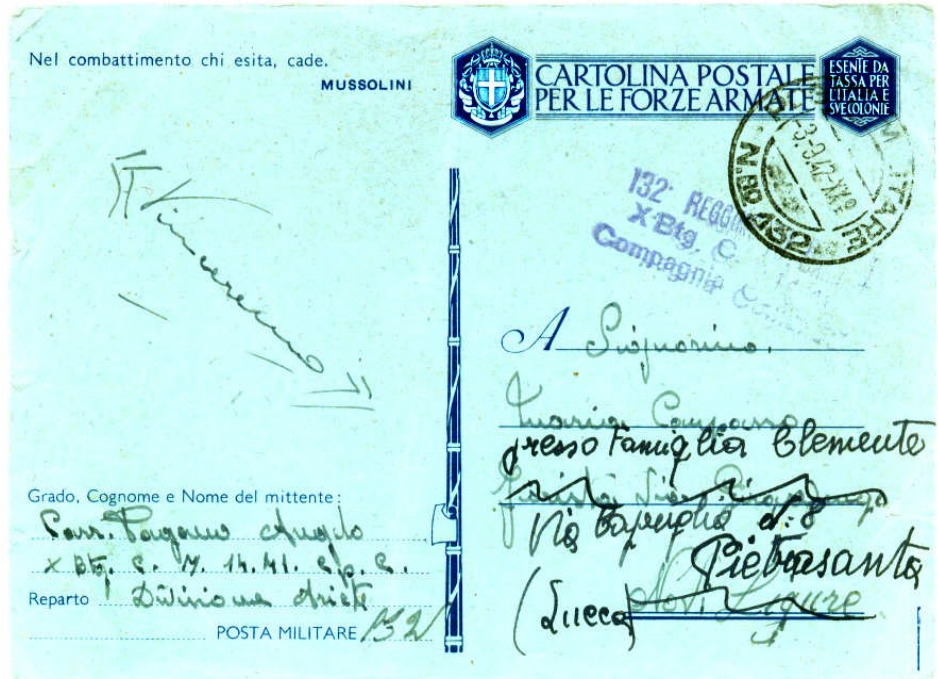 Nel combattimento chi esita, cade.
MUSSOLINI
CARTOLINA POSTALE
PER LE FORZE ARMATE
ESENTE DA
TASSA PER
L'ITALIA E
SVE COLONIE
N.RO 132
3-9.42-XX
132° REGG
X Btg. C.
Compagnia
Vinceremo
A Signorina.
Maria
presso Famiglia Clemente
Via n. 8
Pietrasanta
(Lucca)
Novi Ligure
Grado, Cognome e Nome del mittente:
Pagano Angelo
X Btg. C. M. 14.41.
Reparto Divisione Ariete
POSTA MILITARE 132